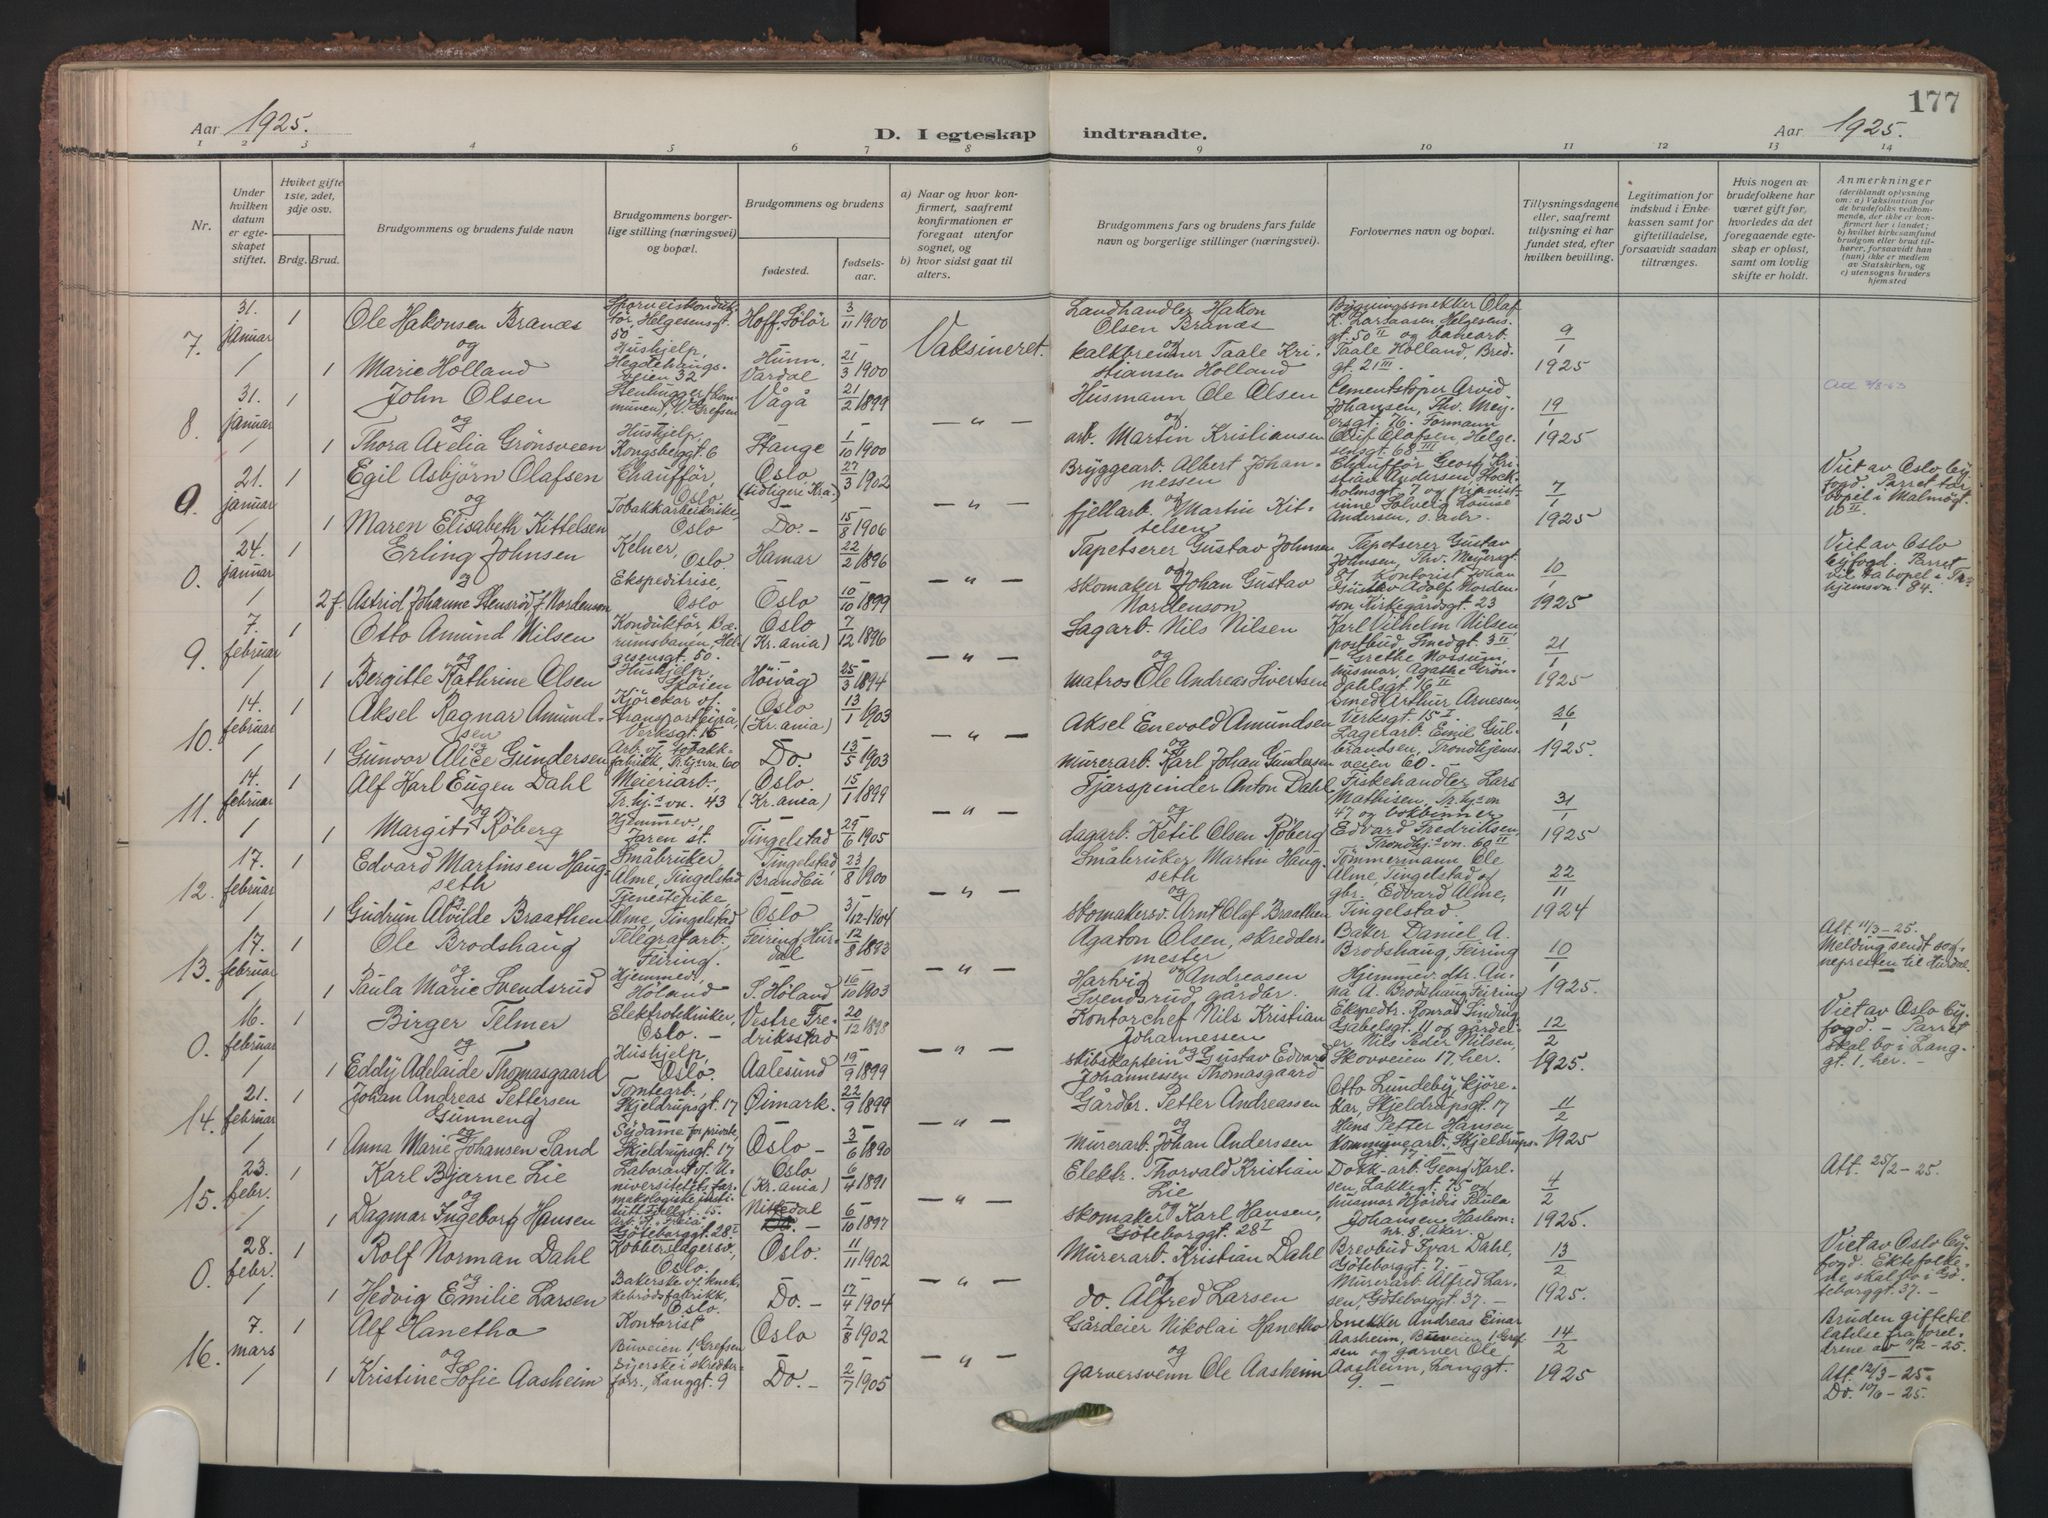 177
Aar 1925.
D. I egteskap indtraadte.
Aar 1925.
1 2 3 4 5 6 7 8 9 10 11 12 13 14
Nr.
Under hvilken datum er egteskapet stiftet.
Hviket gifte 1ste, 2det, 3dje osv.
Brdg. Brud.
Brudgommens og brudens fulde navn
Brudgommens borgerlige stilling (næringsvei) og bopæl.
Brudgommens og brudens
fødested.
fødselsaar.
a) Naar og hvor konfirmert, saafremt konfirmationen er foregaat utenfor sognet, og
b) hvor sidst gaat til alters.
Brudgommens fars og brudens fars fulde navn og borgerlige stillinger (næringsvei).
Forlovernes navn og bopæl.
Tillysningsdagene eller, saafremt tillysning ei har fundet sted, efter hvilken bevilling.
Legitimation for indskud i Enkekassen samt for giftetilladelse, forsaavidt saadan tiltrænges.
Hvis nogen av brudefolkene har været gift før, hvorledes da det foregaaende egteskap er opløst, samt om lovlig skifte er holdt.
Anmerkninger
(deriblandt oplysning om: a) Vaksination for de brudefolks vedkommende, der ikke er konfirmert her i landet; b) hvilket kirkesamfund brudgom eller brud tilhører, forsaavidt han (hun) ikke er medlem av Statskirken, og c) utensogns bruders hjemsted
7. 31. januar 1 Ole Hakonsen Branæs Sporveiskonduktør, Helgesensgt. 50 Hoff, Solør 3/11 1900 Vaksineret. Landhandler Hakon Olsen Branæs Bygningssnekker Olaf K. Larsaasen Helgesensgt. 50 II og banearb. Taale Holland, Bredgt. 21 III. 9/1 1925
og
1 Marie Holland Hushjelp, Hegdehaugsveien 32 Hunn, Vardal 21/3 1900 kalkbrenner Taale Kristiansen Holland
8. 31. januar 1 John Olsen Stenhugger (kommunen), V. Grefsen Vågå 21/2 1899 — " — Husmann Ole Olsen Cementstøper Arvid Johansen, Thv. Meyersgt. 76. Formann Olaf Olafsen, Helgesensgt. 68 III 19/1 1925
og
1 Thora Axelia Grønsveen Hushjelp, Kongsberggt. 6 Stange 1/10 1900 arb. Martin Kristiansen
0. 21. januar 1 Egil Asbjørn Olafsen Chauffør, Oslo Oslo (tidligere Kra.) 27/3 1902 — " — Bryggearb. Albert Johannessen Chauffør Georg Kristian Andersen, Stockholmsgt. 7 og pianistinne Solveig Louise Andersen, s. adr. 7/1 1925 Viet av Oslo byfogd. Parret tar bopel i Malmøgt. 10 II.
og
1 Maren Elisabeth Kittelsen Tobakkarbeiderske, Oslo Do. — 15/8 1906 fjellarb. Martin Kittelsen
0. 24. januar 1 Erling Johnsen Kelner, Oslo Hamar 22/2 1896 — " — Tapetserer Gustav Johnsen Tapetserer Gustav Johnsen, Thv. Meyersgt. Kontorist Johan Gustav Adolf Nordenson, Kirkegårdsgt. 23 10/1 1925 Viet av Oslo byfogd. Parret vil ta bopel i Tr.hjemsvn. 84.
og
2 f. Astrid Johanne Stensrød f. Nordenson Ekspeditrise, Oslo Oslo 10/10 1899 skomaker Johan Gustav Nordenson
9. 7. februar 1 Otto Amund Nilsen Konduktør Bærumsbanen, Helgesensgt. 50. Oslo (Kr.ania) 7/12 1896 — " — Sagarb. Nils Nilsen Karl Vilhelm Nilsen postbud, Smedgt. 3 II — Grethe Mossum, husmor, Agathe Grøndahlsgt. 16 II 21/1 1925
og
1 Bergitte Kathrine Olsen Hushjelp, Skøien Høivåg 25/3 1894 matros Ole Andreas Sivertsen
10. 14. februar 1 Aksel Ragnar Amundsen Kjørekar v/ transportbyrå, Verksgt. 15 Oslo (Kr.ania) 13/1 1903 — " — Aksel Enevold Amundsen smed Arthur Arnesen, Verksgt. 15 I Lagerarb. Emil Gulbrandsen, Trondhjemsveien 60. — 26/1 1925.
og
1 Gunvor Alice Gundersen Arb. v/ tobakkfabrikk, Tr.hj.vn. 60 Do. 13/5 1903 Murerarb. Karl Johan Gundersen
11. 14. februar 1 Alf Karl Eugen Dahl Meieriarb., Tr.hj.s vn. 43 Oslo. (Kr.ania) 15/1 1899 — " — Fjærspinder Anton Dahl Fiskehandler Lars Mathisen, Tr.hj.s vn 47 og bokbinner Edvard Fredriksen, Trondhj.s vn. 60 II 31/1 1925
og
1 Margit Røberg Hjemmev., Jaren st. Tingelstad 29/6 1905 dagarb. Ketil Olsen Røberg
12. 17. februar 1 Edvard Martinsen Haugseth Småbruker, Alme, Tingelstad Tingelstad, Brandbu 23/8 1900 — " — Småbruker Martin Haugseth Tømmermann Ole Alme Tingelstad og gbr. Edvard Alme, Tingelstad. 22/11 1924
og
1 Gudrun Alvilde Braathen Tjenestepike, Alme, Tingelstad Oslo 31/12 - 1904 skomakersv. Arnt Olaf Braathen
13. 17. februar 1 Ole Brodshaug Telegrafarb. Feiring. Feiring, Hurdal 12/8 1893 — " — Agaton Olsen, skreddermester Baker Daniel A. Brodshaug, Feiring Hjemmev. dtr. Anna A. Brodshaug Feiring 10/1 1925. Att. 11/3 - 25. Melding sendt sognepresten til Hurdal.
og
1 Paula Marie Svendsrud Hjemmev. Høland S. Høland 16/10 1903 Hartvig Andreasen Svendsrud, gårdbr.
0. 16. februar 1 Birger Telmer Elektrotekniker, Oslo. — Vestre Fredrikstad 20/12 1898 — " — Kontorchef Nils Kristian Johannessen Ekspedtr. Konrad Lindrug Gabelsgt. 11 og gårdeier Nils Peder Nilsen, Skovveien 17, her. 12/2 1925. Viet av Oslo byfogd. — Parret skal bo i Langgt. 1, her.
og
1 Eddy Adelaide Thomasgaard Hushjelp, Oslo. Aalesund 19/9 1899 skibskaptein Gustav Edvard Johannessen Thomasgaard
14. 21. februar 1 Johan Andreas Pettersen Gunneng Tomtearb., Skjeldrupsgt. 17 Øimark. 22/9 1899 — " — Gårdbr. Petter Andreassen Otto Lundeby, kjørekar, Skjeldrupsgt. 17 Hans Petter Hansen kommunearb. Skjeldrupsgt. 17. — 11/2 1925
og
1 Anna Marie Johansen Sand Sydame for private, Skjeldrupsgt. 17 Oslo — 3/6 1890 Murerarb. Johan Anderssen
15. 23. febr. 1 Karl Bjarne Lie Laborant v/ Universitetets farmakologiske institutt Fjellgt. 15. Oslo (Kr.ania) 6/4 1891 — " — Elektr. Thorvald Kristian Lie Dokkarb. Georg Karlsen, Lakkegt. 75 og husmor Hjørdis Paula Johansen, Haslevn. nr. 8, Aker. 4/2 1925. Att. 25/2 - 25.
og
1 Dagmar Ingeborg Hansen Arb. v/ Freia, Göteborggt. 28 I Nittedal 6/10 1897 skomaker Karl Hansen, Göteborggt. 28 I
0. 28. febr. 1 Rolf Norman Dahl Kobberslagersv., Oslo. Oslo. 11/11 1902 — " — Murerarb. Kristian Dahl Brevbud Ivar Dahl, Göteborggt. 7. — Murerarb. Alfred Larsen, Göteborggt. 37. — 13/2 1925. Viet av Oslo byfogd. Ektefolkene skal bo i Göteborggt. 37. —
og
1 Hedvig Emilie Larsen Bakerske v/ knekkebrødsfabrikk, Oslo. Do. — 17/4 1904 do. Alfred Larsen
16. 7. mars 1 Alf Hanetho Kontorist Buveien 1, Grefsen Oslo 7/8 1902 — " — Gårdeier Nikolai Hanetho Snekker Andreas Einar Aasheim, Buveien 1 Grefsen og garver Ole Aasheim, Langgt. 9. — 14/2 1925 Bruden giftetillatelse fra foreldrene av 11/2 - 25. Att. 12/3 - 25. Do. 10/6 - 25.
og
1 Kristine Sofie Aasheim Syerske i skredderforr., Langgt. 9 Do. — 2/7 1905 garversvenn Ole Aasheim